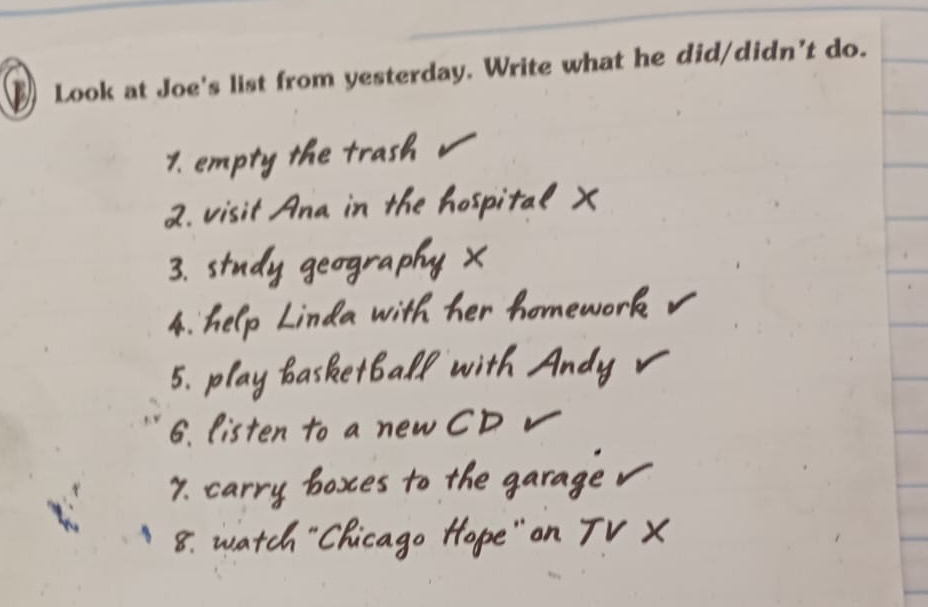 Look at Joe's list from yesterday. Write what he did/didn't do.
1. empty the trash ✓
2. visit Ana in the hospital X
3. study geography X
4. help Linda with her homework ✓
5. play basketball with Andy ✓
6. listen to a new CD ✓
7. carry boxes to the garage ✓
8. watch "Chicago Hope" on TV X